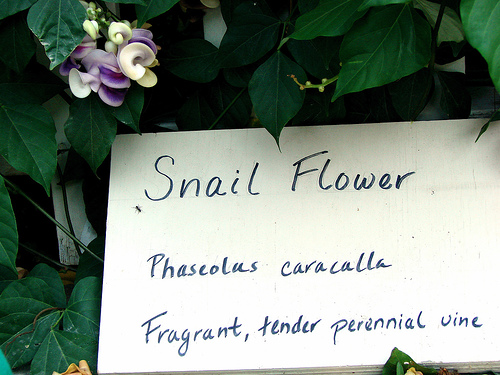 Snail Flower
Phaseolus caracalla
Fragrant, tender perennial vine